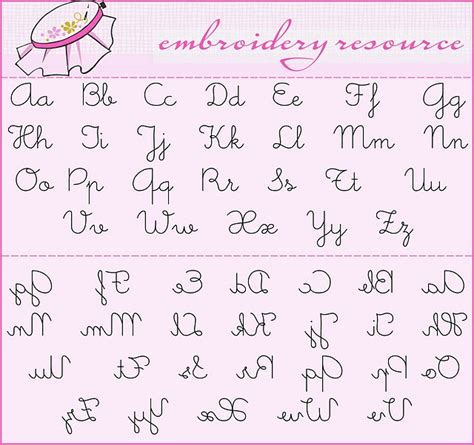 embroidery resource
Aa Bb Cc Dd Ee Ff Gg
Hh Ii Jj Kk Ll Mm Nn
Oo Pp Qq Rr Ss Tt Uu
Vv Ww Xx Yy Zz
Aa Bb Cc Dd Ee Ff Gg
Hh Ii Jj Kk Ll Mm Nn
Oo Pp Qq Rr Ss Tt Uu
Vv Ww Xx Yy Zz